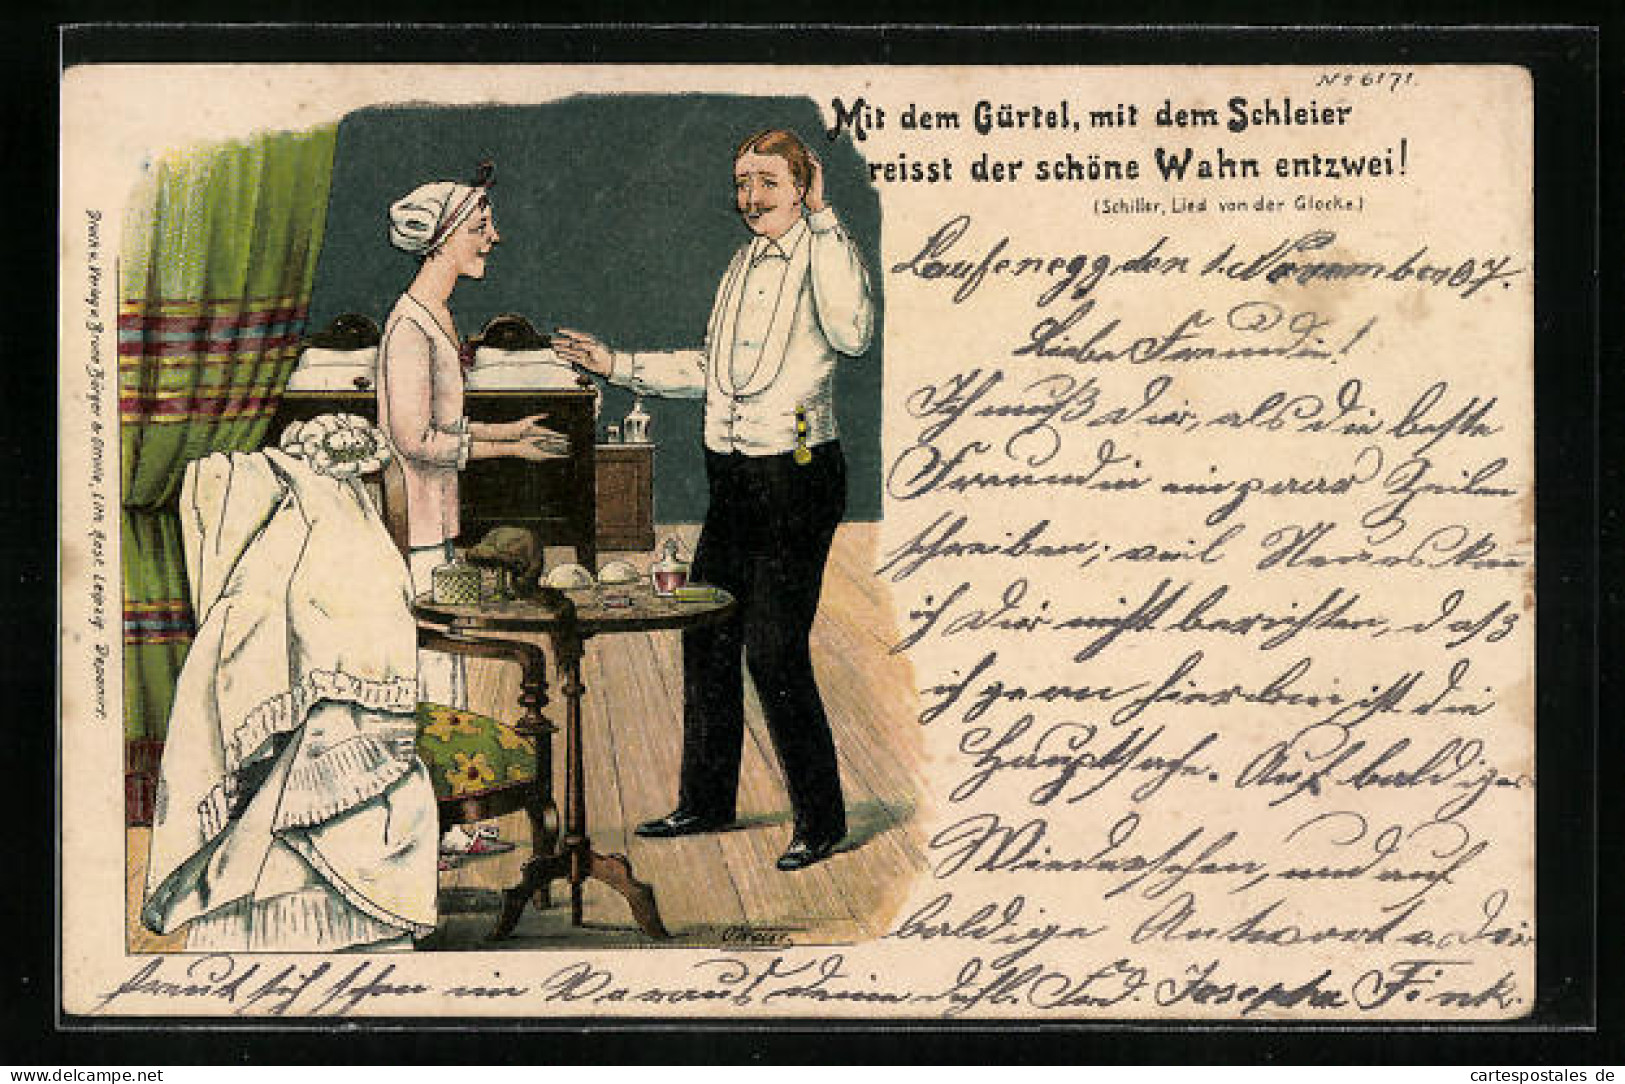 No 6171.
Mit dem Gürtel, mit dem Schleier
reisst der schöne Wahn entzwei!
(Schiller, Lied von der Glocke.)
Laufenegg, den 1. November 07.
Liebe Freundin!
Ich muß Dir, als die beste
Freundin ein paar Zeilen
schreiben, weil Neues kan
ich Dir nicht berichten, daß
ich gern hier bin, ist die
Hauptsache. Auf baldiges
Wiedersehen, und auf
baldige Antwort
freut sich schon im Voraus deine Josepha Fink.
Druck u. Verlag v. Bruno Bürger & Ottillie, Lith. Anst. Leipzig.
cartespostales de